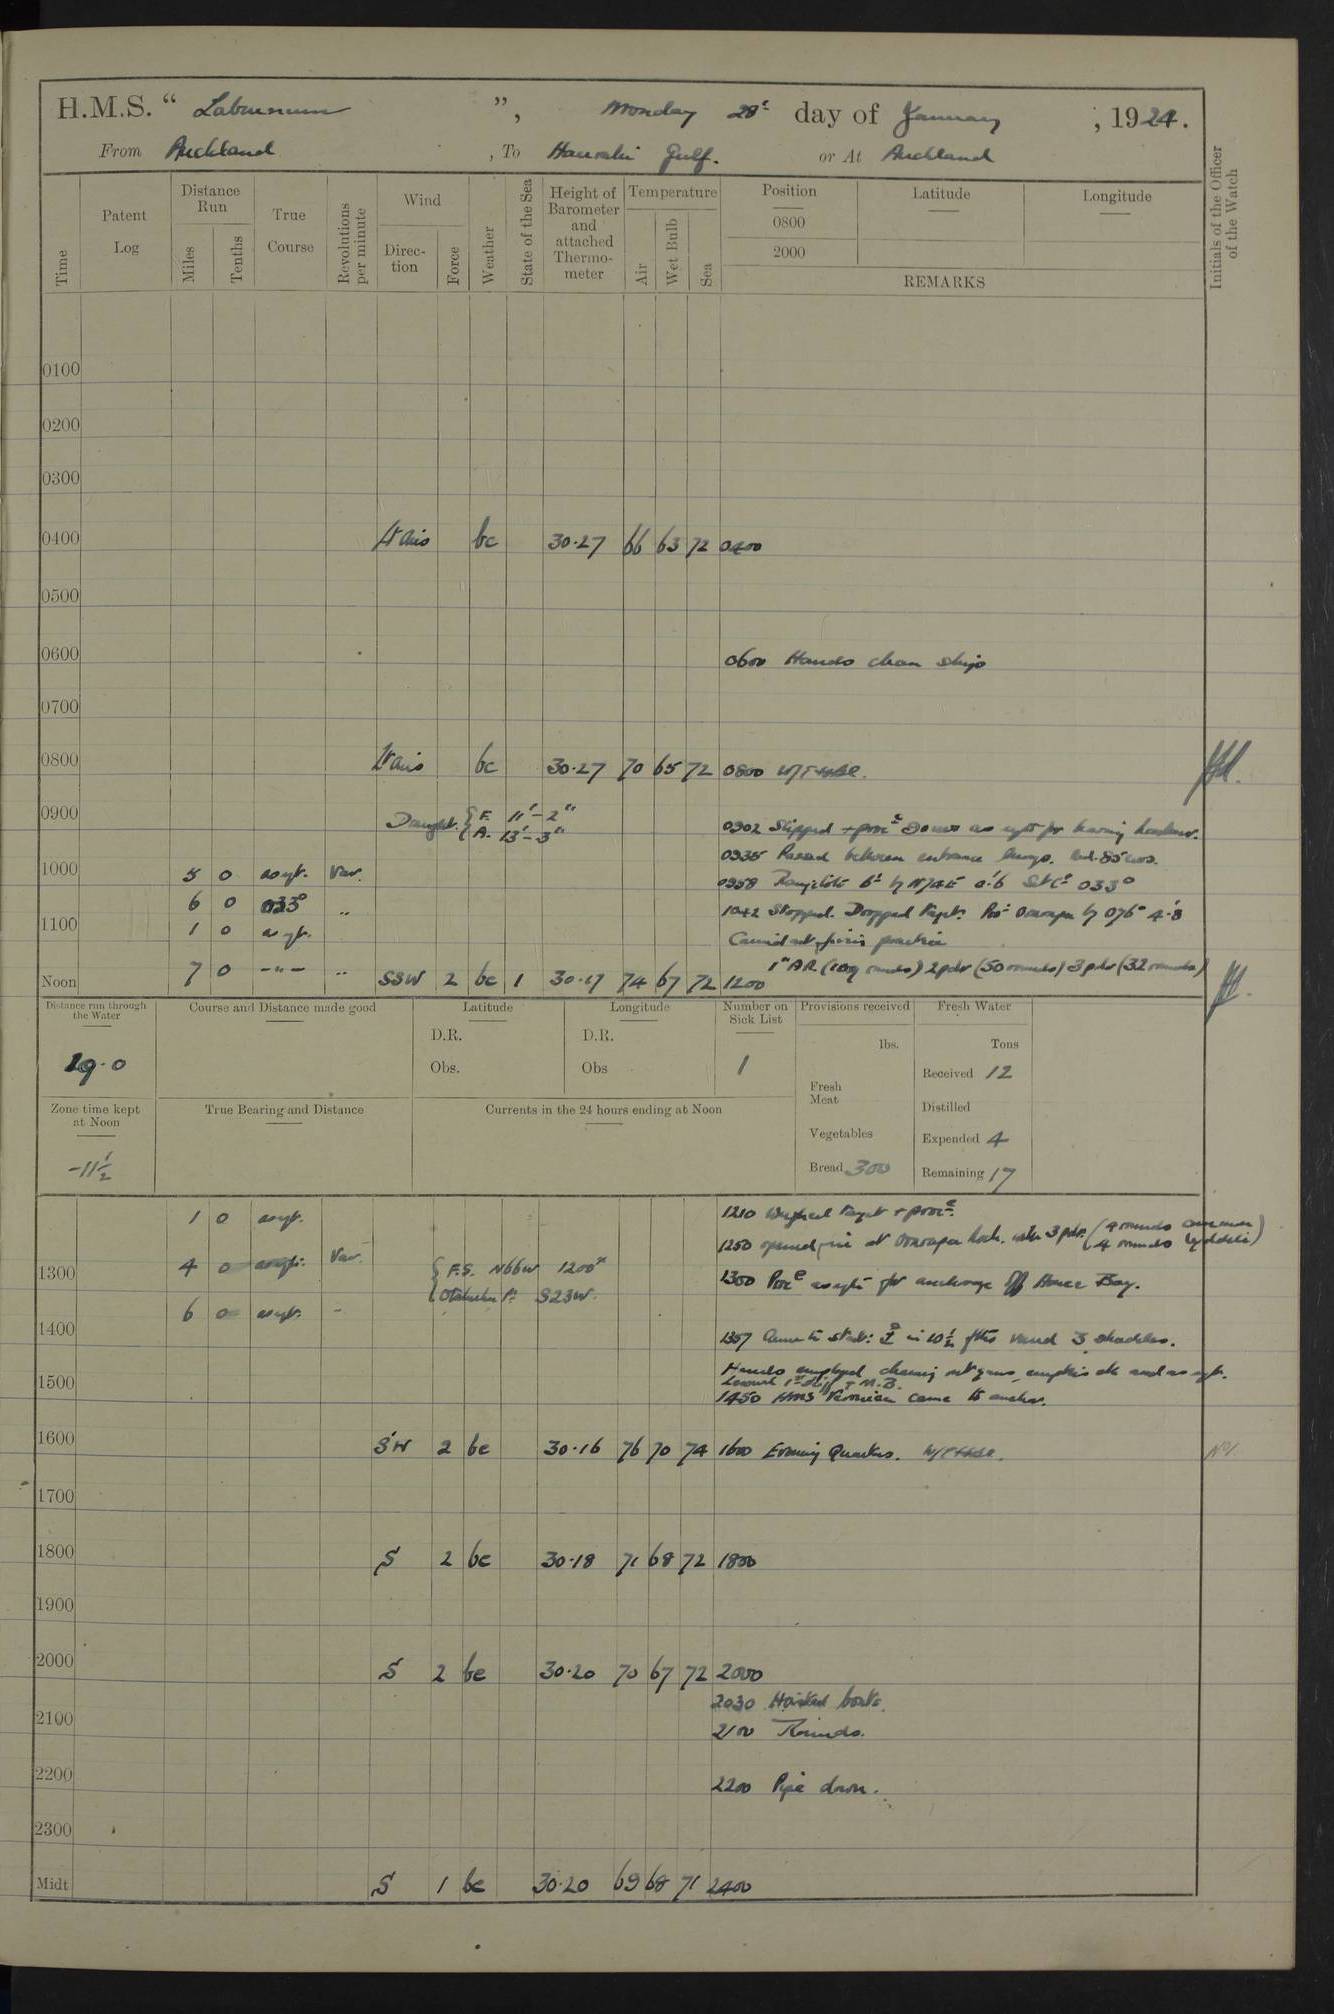 H.M.S. “ Laburnum ”, Monday 28th day of January, 1924.
From Auckland, To Hauraki Gulf. or At Auckland
Time Patent Log Distance Run Miles Tenths True Course Revolutions per minute Wind Direction Force Weather State of the Sea Height of Barometer and attached Thermometer Temperature Air Wet Bulb Sea Position Latitude Longitude
0800
2000
REMARKS
Initials of the Officer of the Watch
0100
0200
0300
0400 Lt airs bc 30.27 66 63 72 0400
0500
0600 0600 Hands clean ship
0700
0800 Lt airs bc 30.27 70 65 72 0800
0900 Draught. { F. 11' - 2" A. 13' - 3"
0902 Slipped + procd as reqte for leaving harbour.
0935 Passed between entrance
1000 5 0 as qt. Var.
0958 033°
6 0 033° "
1042 Stopped. Dropped target. 076° 4.8
1100 1 0 as qt.
Carried out firing practice
1" A.R. ( rounds) 2pdr (50 rounds) 3pdr (32 rounds)
Noon 7 0 -"- " SSW 2 bc 1 30.17 74 67 72 1200
Distance run through the Water Course and Distance made good Latitude Longitude Number on Sick List Provisions received Fresh Water
19.0 D.R. D.R. 1 lbs. Tons
Obs. Obs Fresh Meat Received 12
Zone time kept at Noon True Bearing and Distance Currents in the 24 hours ending at Noon Distilled
-11½ Vegetables Expended 4
Bread 300 Remaining 17
1 0 as qt. 1210 Weighed target + procd.
1250 opened fire at with 3pdr. (4 rounds common 4 rounds lyddite)
1300 4 0 as qt. Var. { F.S. N66W 1200x
1300 Procd as qte for anchorage off Bay.
6 0 as qt. - S23W.
1400
1357 Came to stbd: in 10½ fths veered 3 shackles.
Hands employed cleaning out guns, and as qt.
1500
1450 HMS Veronica came to anchor.
1600 SW 2 bc 30.16 76 70 74 1600 Evening Quarters.
1700
1800 S 2 bc 30.18 71 68 72 1800
1900
2000 S 2 bc 30.20 70 67 72 2000
2030 Hoisted boats.
2100 2100 Rounds.
2200 2200 Pipe down.
2300
Midt S 1 bc 30.20 69 68 71 2400